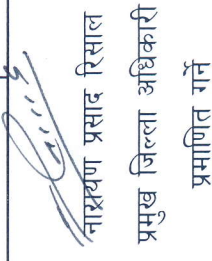 नारायण प्रसाद रिसाल
प्रमुख जिल्ला अधिकारी
प्रमाणित गर्ने